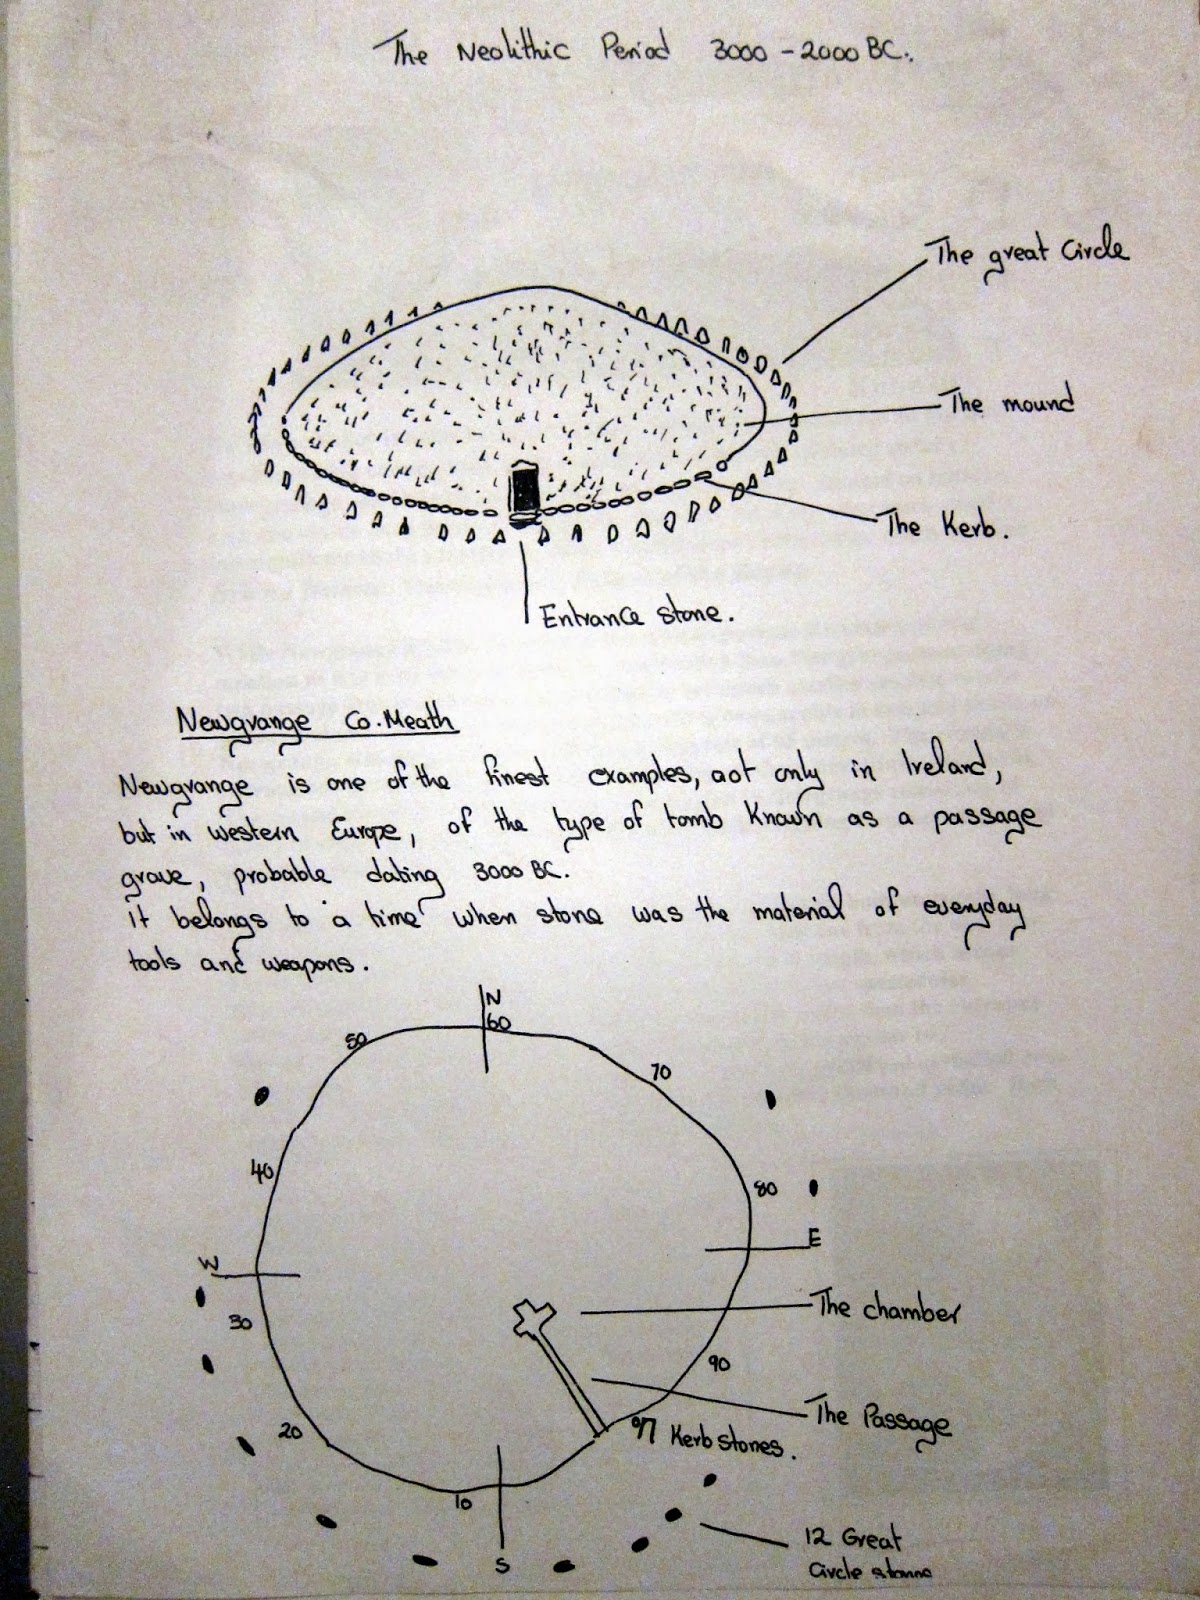 The Neolithic Period 3000 - 2000 BC.
The great Circle
The mound
The Kerb.
Entrance stone.
Newgrange Co. Meath
Newgrange is one of the finest examples, not only in Ireland,
but in western Europe, of the type of tomb Known as a passage
grave, probable dating 3000 BC.
it belongs to "a time" when stone was the material of everyday
tools and weapons.
N
60
50
70
40
80
E
W
30
The chamber
90
The Passage
97 Kerb stones.
20
10
S
12 Great
Circle stones